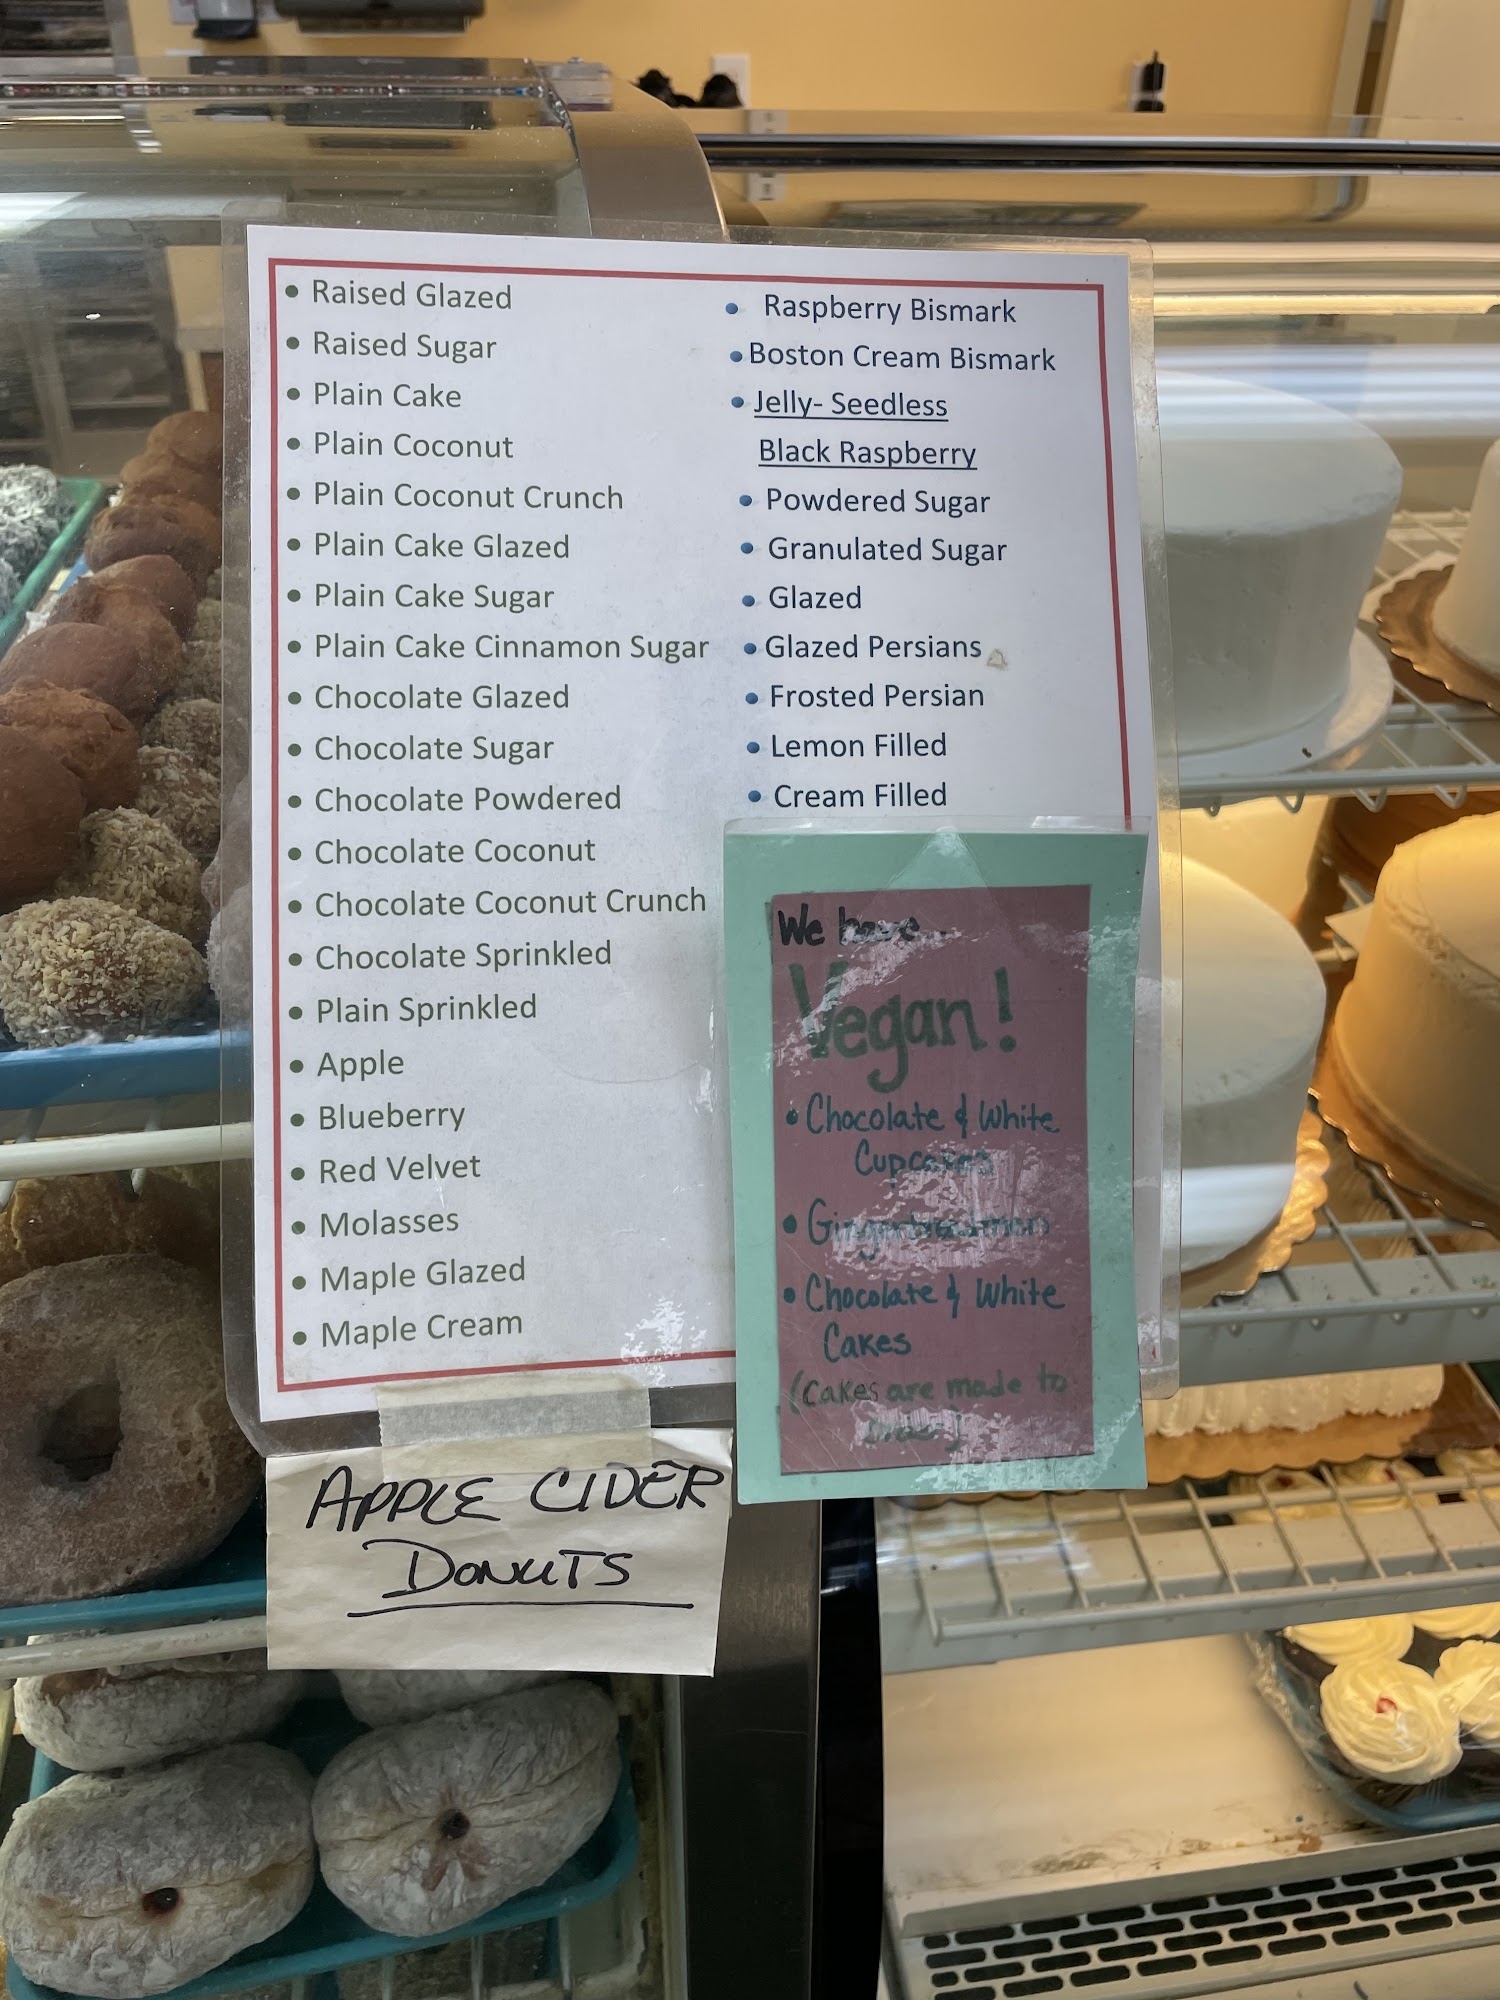 • Raised Glazed
• Raised Sugar
• Plain Cake
• Plain Coconut
• Plain Coconut Crunch
• Plain Cake Glazed
• Plain Cake Sugar
• Plain Cake Cinnamon Sugar
• Chocolate Glazed
• Chocolate Sugar
• Chocolate Powdered
• Chocolate Coconut
• Chocolate Coconut Crunch
• Chocolate Sprinkled
• Plain Sprinkled
• Apple
• Blueberry
• Red Velvet
• Molasses
• Maple Glazed
• Maple Cream
• Raspberry Bismark
• Boston Cream Bismark
• Jelly- Seedless
Black Raspberry
• Powdered Sugar
• Granulated Sugar
• Glazed
• Glazed Persians
• Frosted Persian
• Lemon Filled
• Cream Filled
We have..
Vegan!
• Chocolate & White
Cupcakes
• Chocolate & White
Cakes
(Cakes are made to
order)
APPLE CIDER
DONUTS